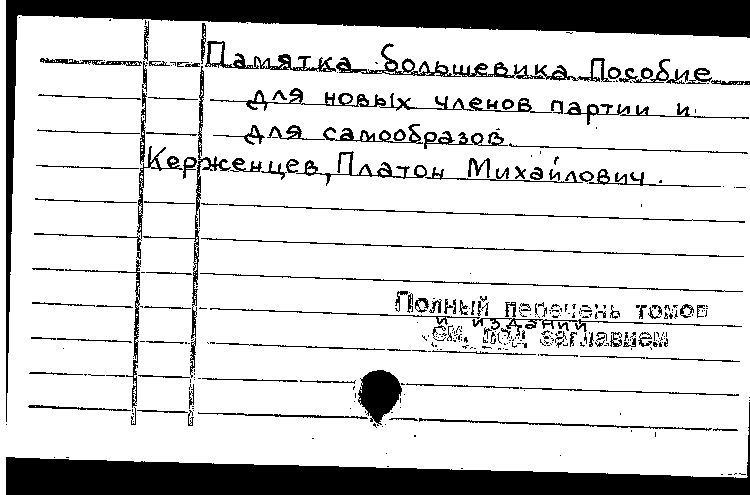 Памятка большевика. Пособие
для новых членов партии и
для самообразов.
Керженцев, Платон Михайлович.
Полный перечень томов
и изданий
см. под заглавием